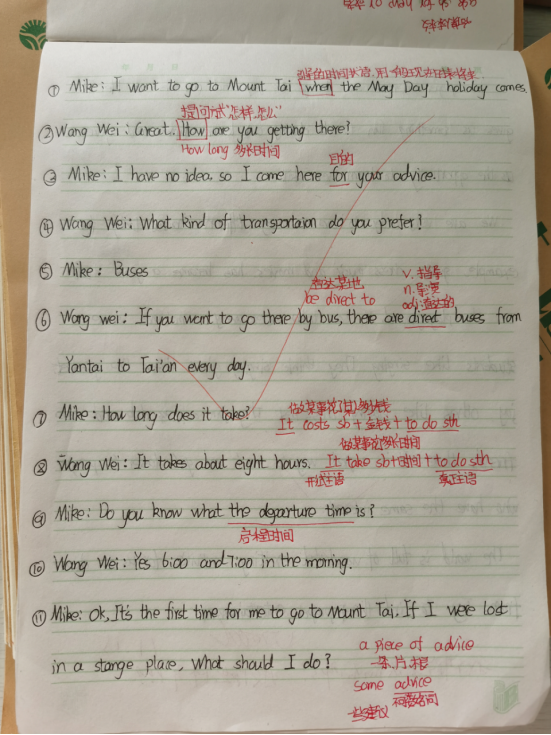 ① Mike: I want to go to Mount Tai when the May Day holiday comes.
提问方式"怎样,怎么"
② Wang Wei: Great. How are you getting there?
How long 多长时间
目的
③ Mike: I have no idea. so I come here for your advice.
④ Wang Wei: What kind of transportaion do you prefer?
⑤ Mike: Buses
表达某地
be direct to
v. 指导
n. 导演
adj 直达的
⑥ Wang wei: If you want to go there by bus, there are direct buses from
Yantai to Tai'an every day.
做某事花了(某人)多少钱
⑦ Mike: How long does it take? It costs sb + 金钱 + to do sth
做某事花多长时间
⑧ Wang Wei: It takes about eight hours. It take sb + 时间 + to do sth
形式主语 真正主语
⑨ Mike: Do you know what the departure time is?
启程时间
⑩ Wang Wei: Yes 6:00 and 7:00 in the morning.
⑪ Mike: Ok, It's the first time for me to go to Mount Tai, If I were lost
in a stange place, What should I do?
a piece of advice
一条.片.根
some advice
一些建议 不可数名词